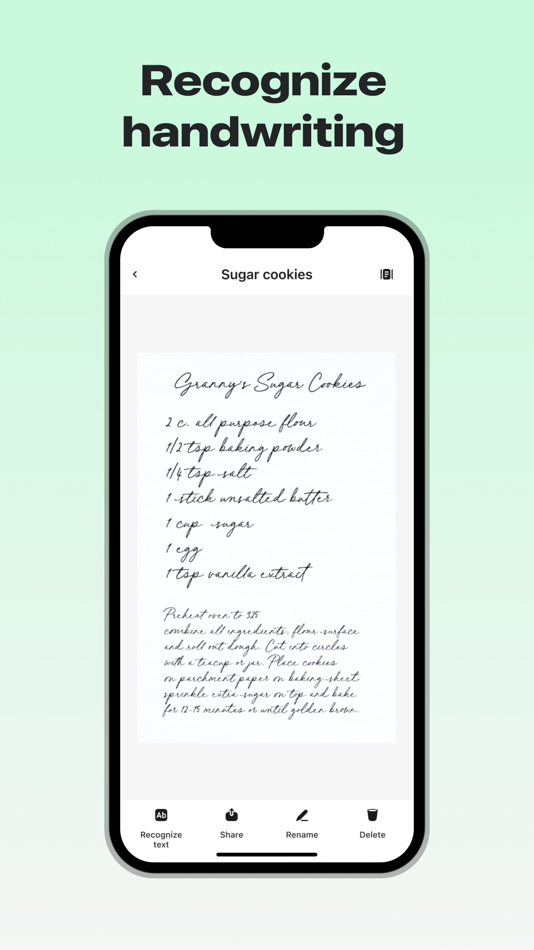 Recognize
handwriting
Sugar cookies
Granny's Sugar Cookies
2 c. all purpose flour
1/2 tsp baking powder
1/4 tsp salt
1 stick unsalted butter
1 cup sugar
1 egg
1 tsp vanilla extract
Preheat oven to 325
combine all ingredients. flour surface
and roll out dough. Cut into circles
with a teacup or jar. Place cookies
on parchment paper on baking sheet
sprinkle extra sugar on top and bake
for 12-15 minutes or until golden brown.
Ab
Recognize text
Share
Rename
Delete